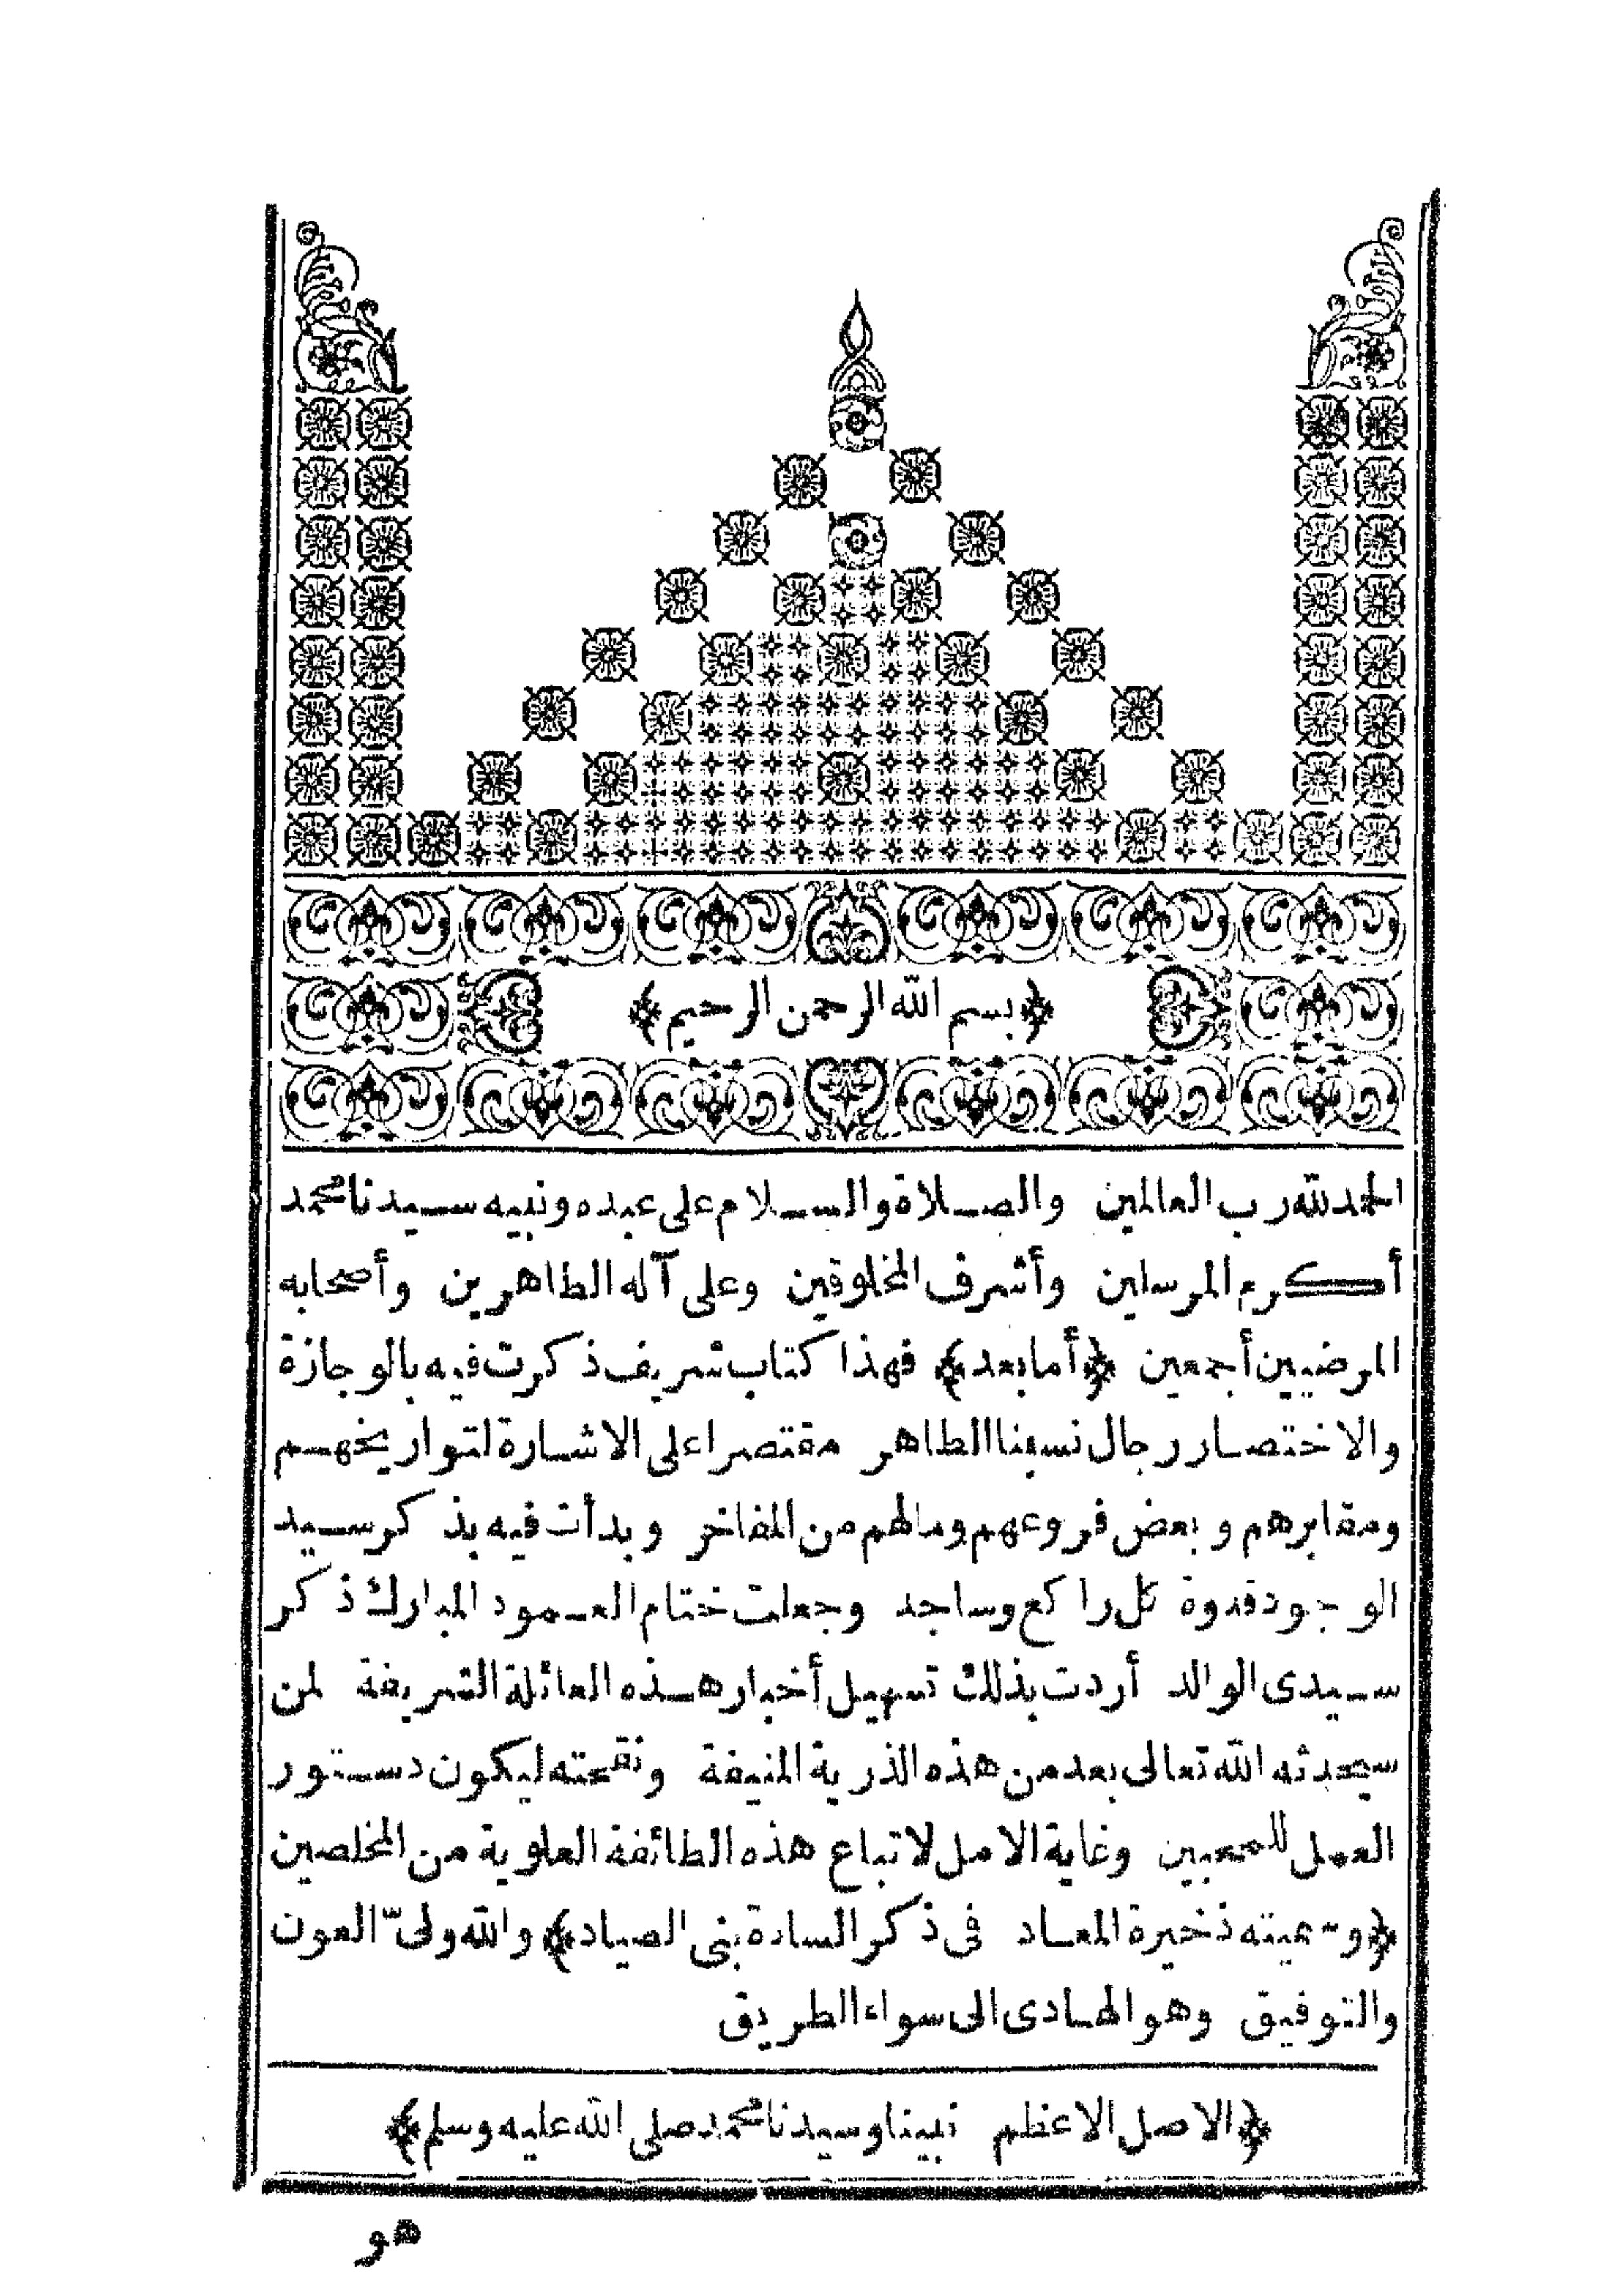 ﴿بسم الله الرحمن الرحيم﴾
الحمد لله رب العالمين والصلاة والسلام على عبده ونبيه سيدنا محمد
أكرم المرسلين وأشرف المخلوقين وعلى آله الطاهرين وأصحابه
المرضيين أجمعين ﴿أما بعد﴾ فهذا كتاب شريف ذكرت فيه بالوجازة
والاختصار رجال نسبنا الطاهر مقتصرا على الاشارة لتواريخهم
ومقابرهم وبعض فروعهم وما لهم من المفاخر وبدأت فيه بذكر سيد
الوجود قدوة كل راكع وساجد وجعلت ختام العمود المبارك ذكر
سيدى الوالد أردت بذلك تسهيل أخبار هذه العائلة الشريفة لمن
سيحدثه الله تعالى بعد من هذه الذرية المنيفة ونقحته ليكون دستور
العمل للمحبين وغاية الامل لاتباع هذه الطائفة العلوية من المخلصين
﴿وسميته ذخيرة المعاد فى ذكر السادة بنى الصياد﴾ والله ولىّ العون
والتوفيق وهو الهادى الى سواء الطريق
﴿الاصل الاعظم نبينا وسيدنا محمد صلى الله عليه وسلم﴾
هو